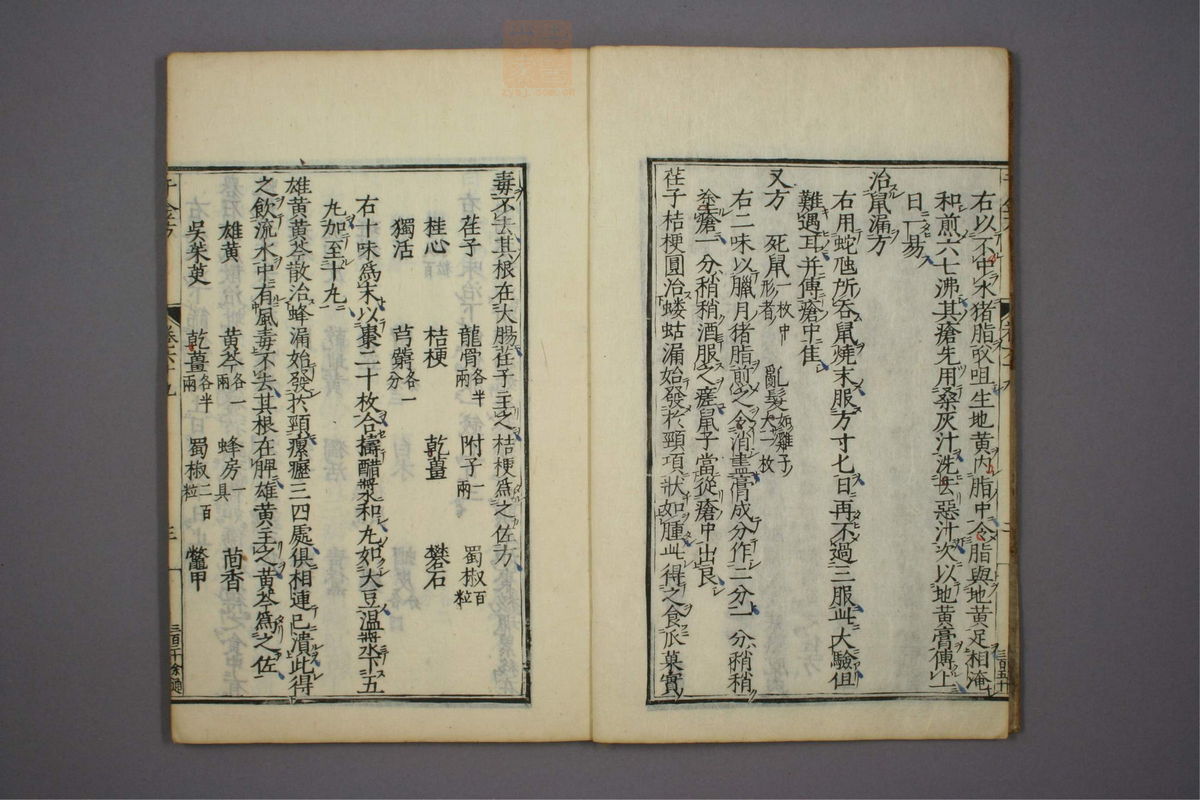 右以不中水猪脂㕮咀生地黄内脂中令脂與地黄足相淹
和煎六七沸其瘡先用桑灰汁洗去惡汁次以地黄膏傅上
日一易
治鼠漏方
右用蛇虺所吞鼠燒末服方寸七日再不過三服此大驗但
難遇耳并傅瘡中佳
又方 死鼠一枚中形者 亂髮如雞子大一枚
右二味以臘月猪脂煎之令消盡膏成分作二分一分稍稍
塗瘡一分稍稍酒服之瘥鼠子當從瘡中出良
荏子桔梗圓治螻蛄漏始發於頸項狀如腫此得之食瓜菓實
毒不去其根在大腸荏子主之桔梗為之佐方
荏子 龍骨各半兩 附子一兩 蜀椒百粒
桂心 桔梗 乾薑 礬石
獨活 芎藭各一分
右十味為末以棗二十枚合擣醋漿和丸如大豆温漿下五
丸加至十丸
雄黄黄芩散治蜂漏始發於頸瘰癧三四處俱相連已潰此得
之飲流水中有風毒不去其根在脾雄黄主之黄芩為之佐
雄黄 黄芩各一兩 蜂房一具 茴香
吳茱萸 乾薑各半兩 蜀椒二百粒 鱉甲